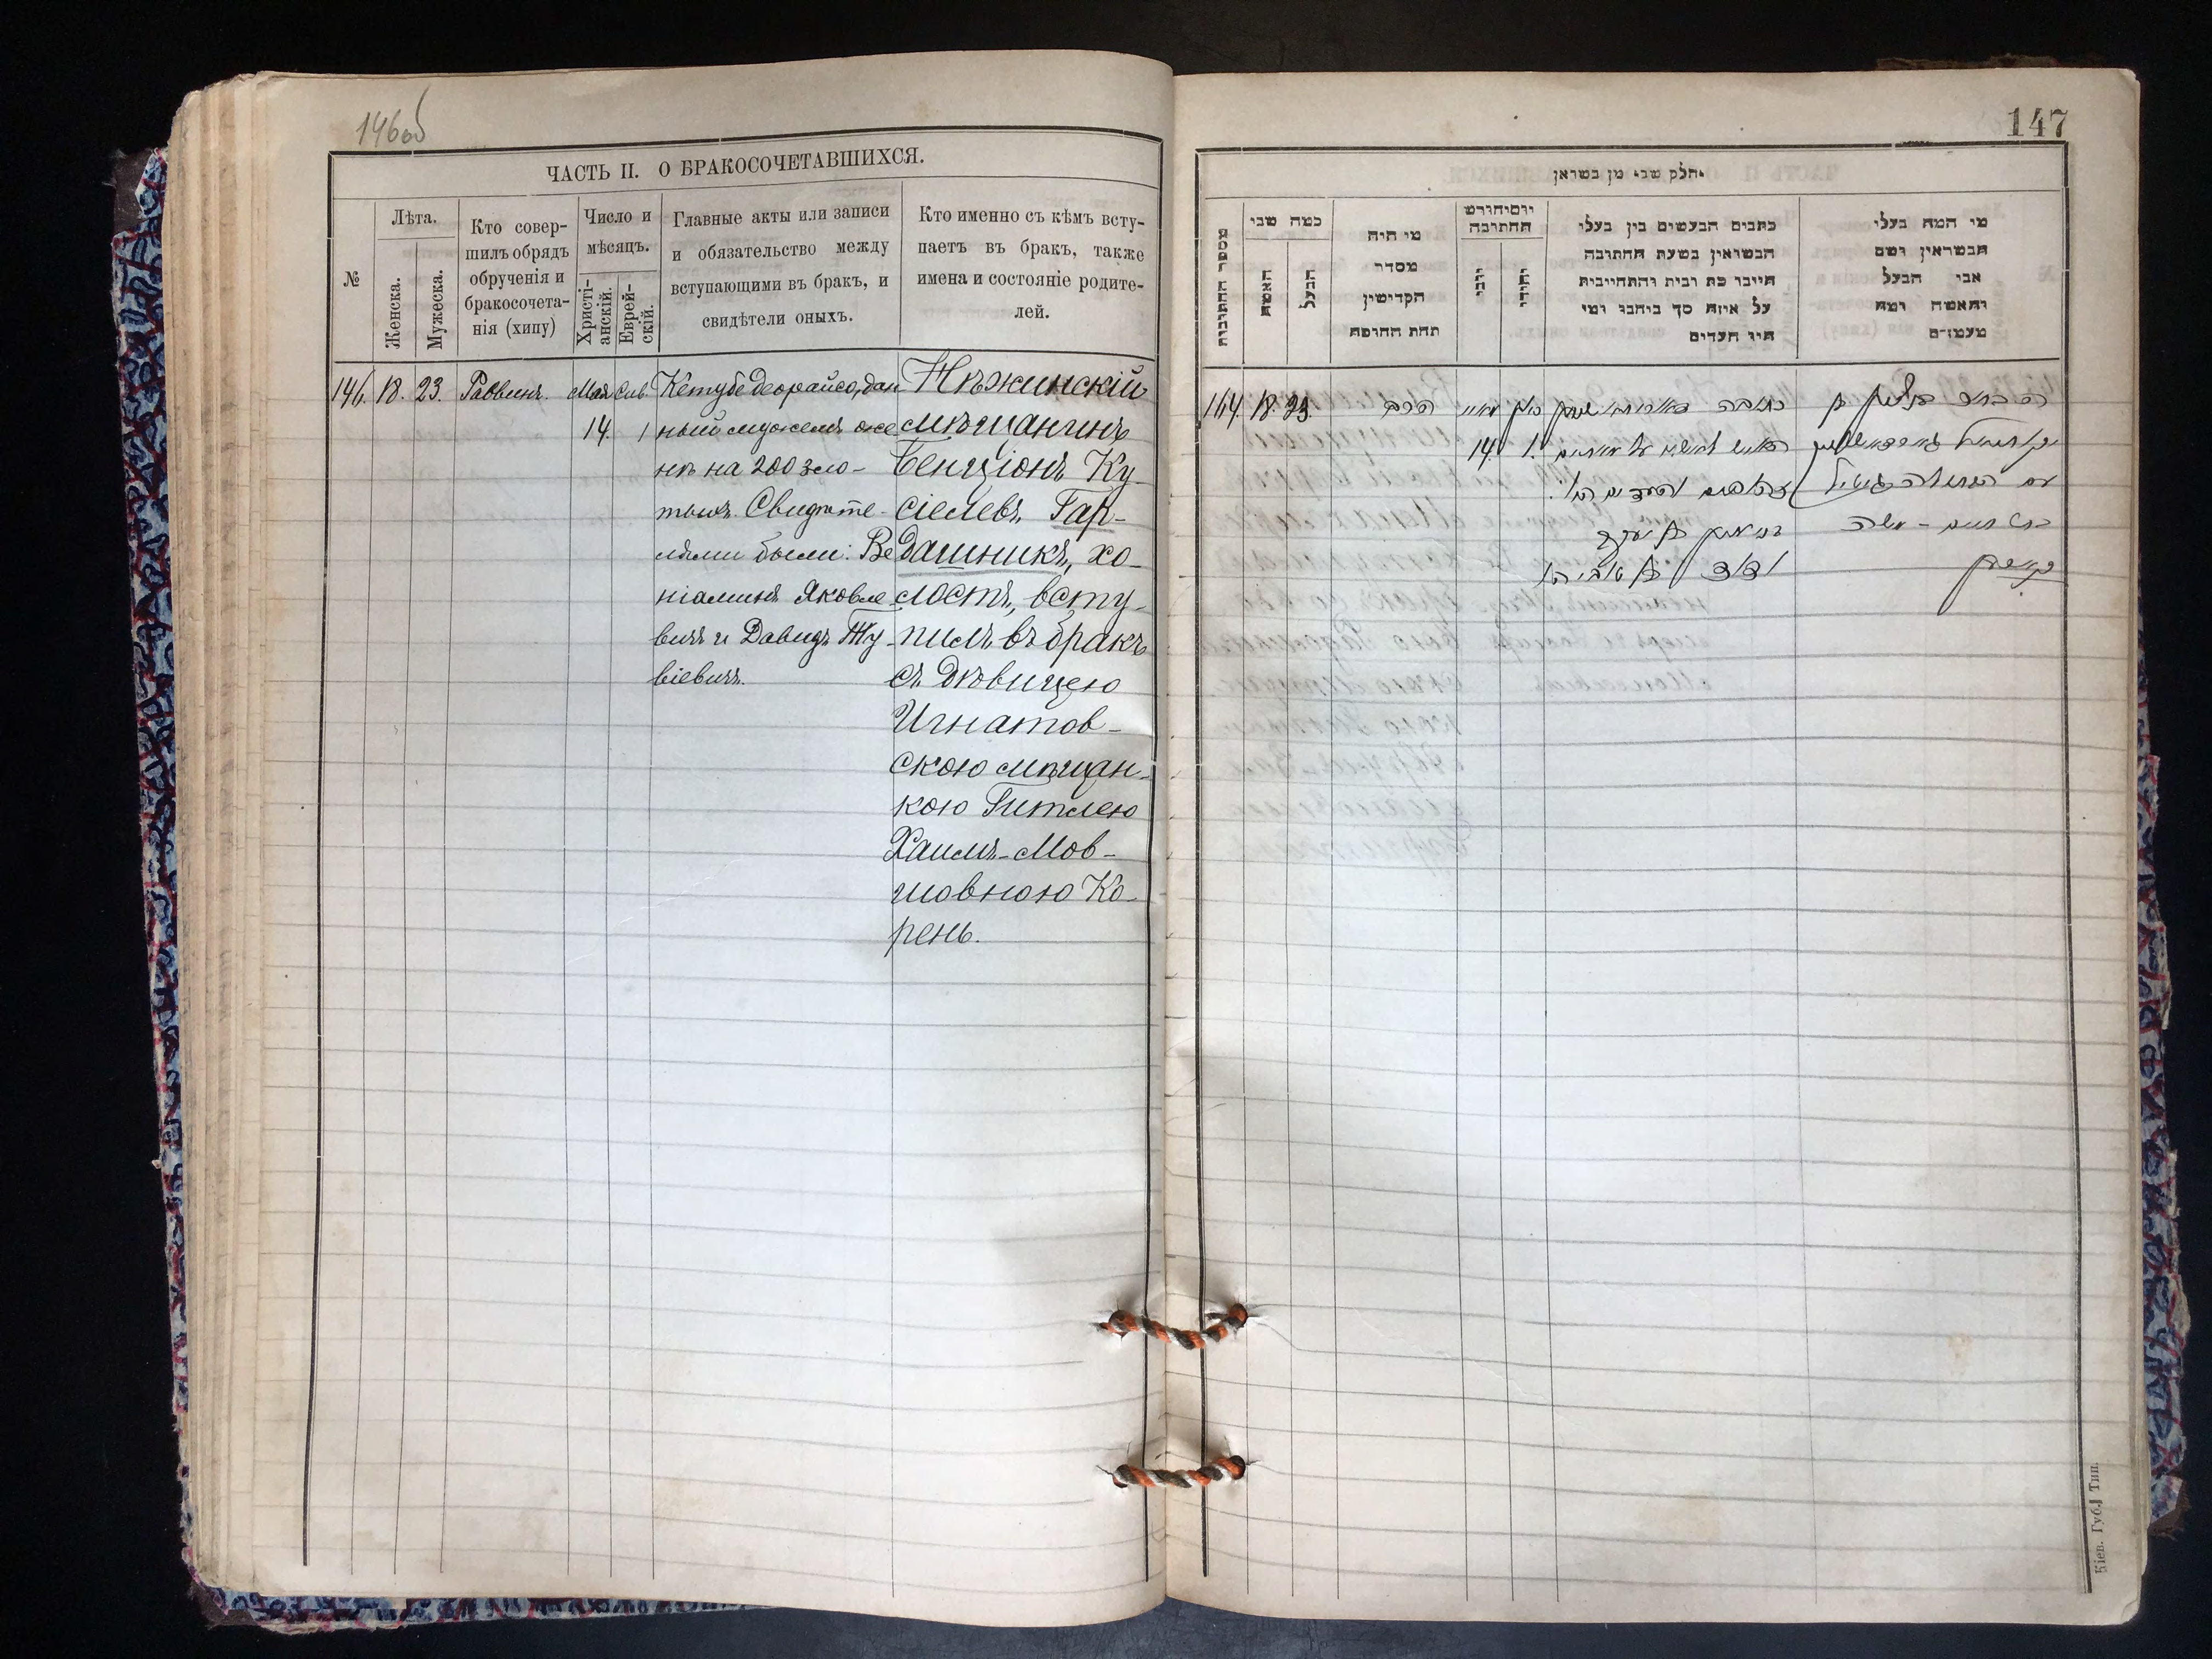 146об
ЧАСТЬ II. О БРАКОСОЧЕТАВШИХСЯ.
№
Лѣта.
Женска.
Мужеска.
Кто совер-
шилъ обрядъ
обрученія и
бракосочета-
нія (хипу)
Число и
мѣсяцъ.
Христі-
анскій.
Еврей-
скій.
Главные акты или записи
и обязательство между
вступающими въ бракъ, и
свидѣтели оныхъ.
Кто именно съ кѣмъ всту-
паетъ въ бракъ, также
имена и состояніе родите-
лей.
146. 18. 23. Раввинъ. Мая Сив.
14. 1
Кетубе деорайса, дан-
ный мужемъ же-
нѣ на 200 зло-
тыхъ. Свидѣте-
лями были: Ве
ніаминъ Яковле
вичъ и Давидъ Ту-
віевичъ.
Нѣжинскій
мѣщанинъ
Бенціонъ Ку-
сіелевъ Гар-
дашникъ, хо-
лостъ, всту-
пилъ въ бракъ
съ дѣвицею
Игнатов-
скою мѣщан-
кою Гитлею
Хаимъ-Мов-
шовною Ко-
рень.
147
חלק שני מן נשואין
מספר החתונות
כמה שני
האשה
הבעל
מי היה
מסדר
הקדישין
תחת החופה
יום וחודש
החתונה
נוצרי
יהודי
כתבים הנעשים בין בעלי
הנשואין בשעת החתונה
היינו כתובות והתחייבות
על איזה סך ביניהם ומי
היו העדים
מי המה בעלי
הנשואין ושם
אבי הבעל
והאשה ומה
מעמדם
164. 18. 23. הרב מאי סיון
14. 1.
כתובה דאורייתא
בנימין בן יעקב
ודוד בן טוביה
עם הבתולה גיטיל
בת חיים-משה
Кіев. Губ. Тип.